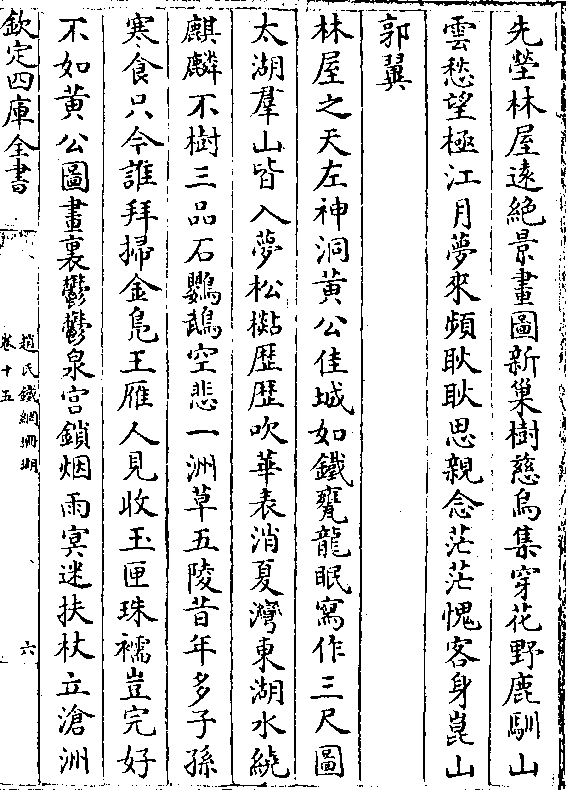 先塋林屋遠絶景畫圖新巢樹慈烏集穿花野鹿馴山
雲愁望極江月夢來頻耿耿思親念茫茫愧客身崑山
郭翼
林屋之天左神洞黄公佳城如鐵甕龍眠寫作三尺圖
太湖羣山皆入夢松歴歴吹華表消夏灣東湖水繞
麒麟不樹三品石鸚鵡空悲一洲草五陵昔年多子孫
寒食只今誰拜掃金鳬王雁人見收玉匣珠襦豈完好
不如黄公圖畫裏鬱鬱泉宫鎖烟雨冥迷扶杖立滄洲
欽定四庫全書
趙氏鐵網珊瑚
卷十五
六